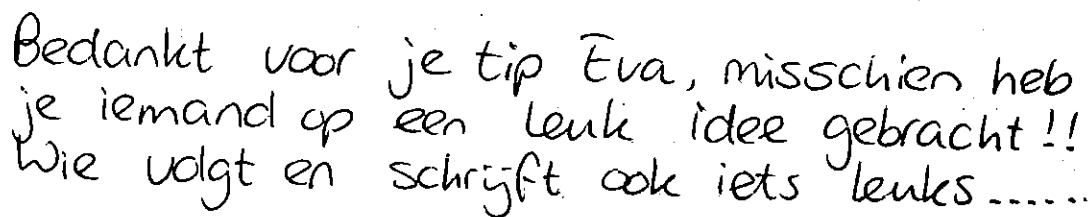 Bedankt voor je tip Eva, misschien heb
je iemand op een leuk idee gebracht!!
Wie volgt en schrijft ook iets leuks......